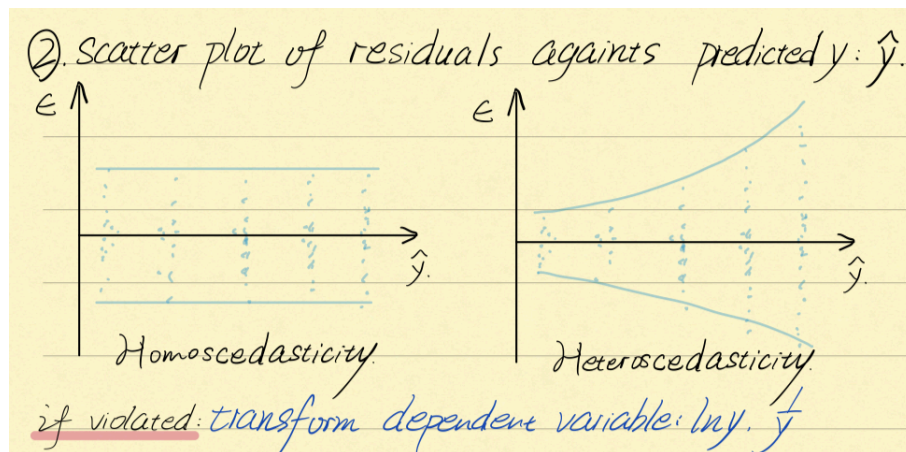 ②. scatter plot of residuals againts predicted y: ŷ.
ϵ
ŷ.
Homoscedasticity.
ϵ
ŷ.
Heteroscedasticity.
if violated: transform dependent variable: lny. 1/y